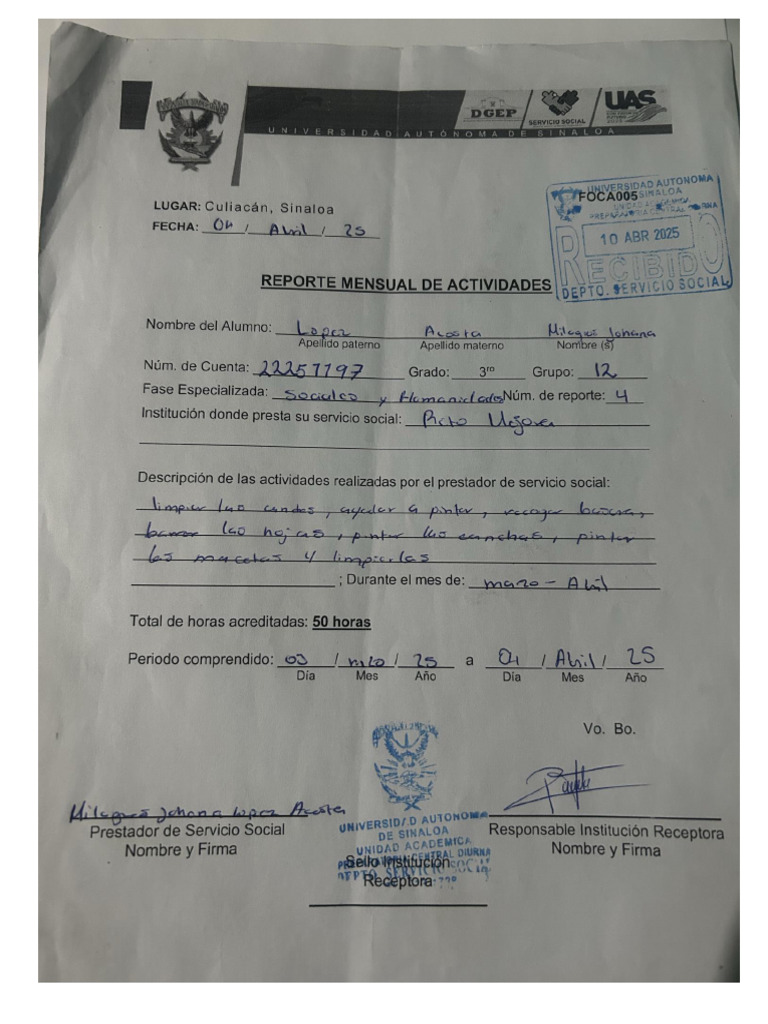 DGEP
SERVICIO SOCIAL
UAS
UNIVERSIDAD AUTÓNOMA DE SINALOA
UNIVERSIDAD AUTONOMA
FOCA005 SINALOA
UNIDAD ACADEMICA
CENTRAL DIURNA
10 ABR 2025
RECIBIDO
DEPTO. SERVICIO SOCIAL
LUGAR: Culiacán, Sinaloa
FECHA: 04 / Abril / 25
REPORTE MENSUAL DE ACTIVIDADES
Nombre del Alumno: Lopez Acosta Milagros Johana
Apellido paterno Apellido materno Nombre (s)
Núm. de Cuenta: 22257797 Grado: 3ro Grupo: 12
Fase Especializada: Sociales y Humanidades Núm. de reporte: 4
Institución donde presta su servicio social:
Descripción de las actividades realizadas por el prestador de servicio social:
limpiar las ayudar a pintar, recoger basura,
barrer las hojas, pintar las canchas, pintar
las macetas y limpiarlas
; Durante el mes de: marzo - Abril
Total de horas acreditadas: 50 horas
Periodo comprendido: 03 / / 25 a 04 / Abril / 25
Día Mes Año Día Mes Año
Vo. Bo.
Milagros Johana Lopez Acosta
Prestador de Servicio Social
Nombre y Firma
UNIVERSIDAD AUTONOMA
DE SINALOA
UNIDAD ACADEMICA
CENTRAL DIURNA
DEPTO. SERVICIO SOCIAL
Sello Institución
Receptora
Responsable Institución Receptora
Nombre y Firma